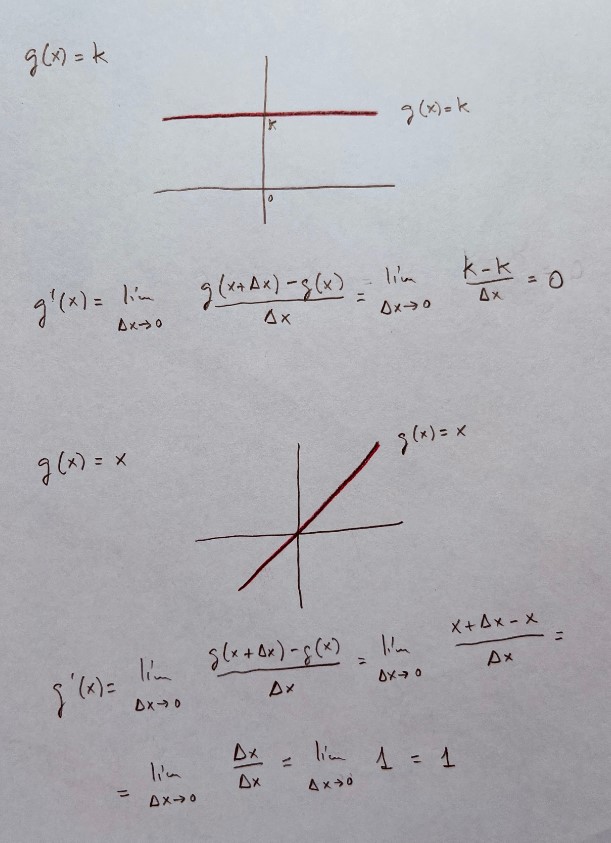 g(x) = k
g(x) = k
k
0
g'(x) = lim Δx→0 g(x+Δx) - g(x) / Δx = lim Δx→0 k - k / Δx = 0
g(x) = x
g(x) = x
g'(x) = lim Δx→0 g(x+Δx) - g(x) / Δx = lim Δx→0 x + Δx - x / Δx =
= lim Δx→0 Δx / Δx = lim Δx→0 1 = 1